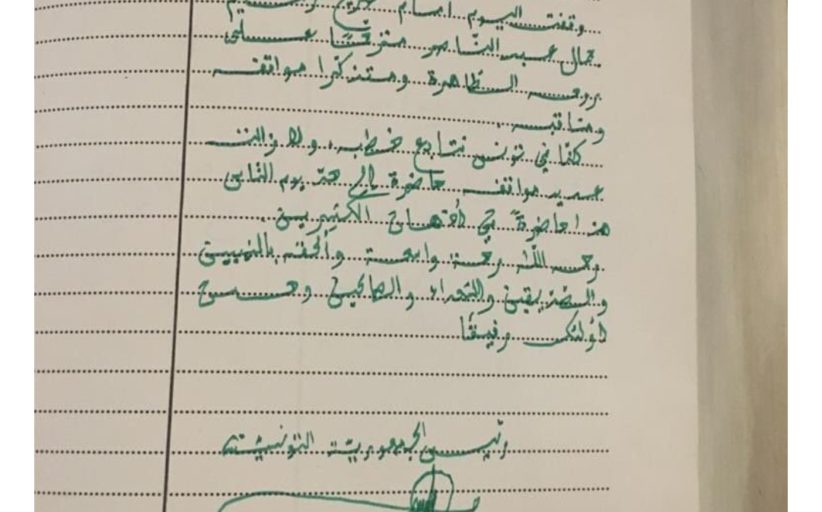 وقفت اليوم أمام ضريح
جمال عبد الناصر مترحّمًا على
روحه الطاهرة ومتذكّرا مواقفه
ومناقبه.
كنّا في تونس نتابع خطبه، ولا زالت
عديد مواقفه حاضرة إلى حدّ يوم النّاس
هذا حاضرةً في أذهان الكثيرين.
رحمه اللّه رحمة واسعة وألحقه بالنبيين
والصّدّيقين والشهداء والصالحين وحسن
أولئك رفيقًا
رئيس الجمهوريّة التونسيّة